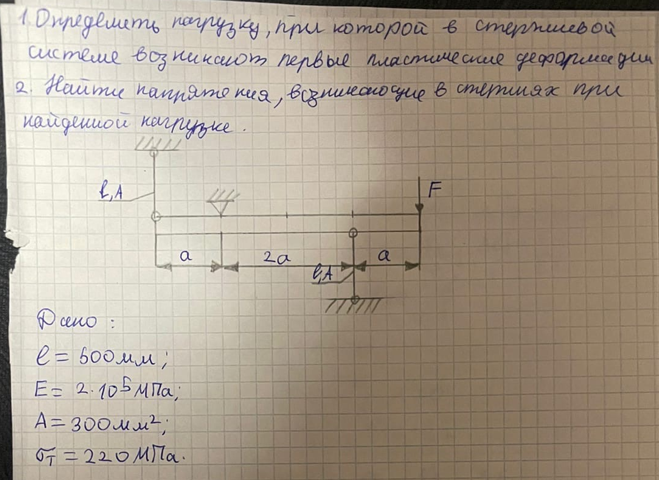 1. Определить нагрузку, при которой в стержневой
системе возникают первые пластические деформации
2. Найти напряжения, возникающие в стержнях при
найденной нагрузке.
l, A
F
a
2a
l, A
a
Дано:
l = 500мм;
E = 2·10⁵ МПа;
A = 300мм²;
σт = 220 МПа.